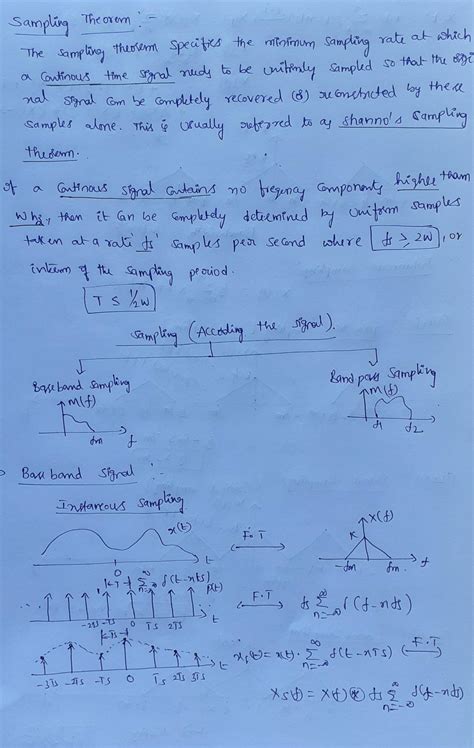 Sampling Theorem :-
The sampling theorem specifies the minimum sampling rate at which
a continous time signal needs to be uniformly sampled so that the origi
nal signal can be completely recovered (or) reconstricted by these
samples alone. This is usually referred to as shanno's sampling
theorem.
If a continous signal contains no freqency components higher than
W hz, then it can be completely determined by uniform samples
taken at a rate fs' samples per second where fs ≥ 2W, or
interm of the sampling period.
T ≤ 1/2W
Sampling (Accoding the signal).
Baseband sampling
Band pass sampling
M(f)
fm
f
M(f)
f1
f2
Baseband signal :-
Instaneous sampling
x(t)
t
0
F.T
X(f)
K
-fm
fm
f
|←T→| ∑ n=-∞ ∞ δ(t-nTs)
p(t)
-2Ts -Ts 0 Ts 2Ts
t
F.T
fs ∑ n=-∞ ∞ δ(f-nfs)
|←Ts→|
-3Ts -2Ts -Ts 0 Ts 2Ts 3Ts
t
xs(t) = x(t). ∑ n=-∞ ∞ δ(t-nTs) F.T
Xs(f) = X(f) ⊛ fs ∑ n=-∞ ∞ δ(f-nfs)